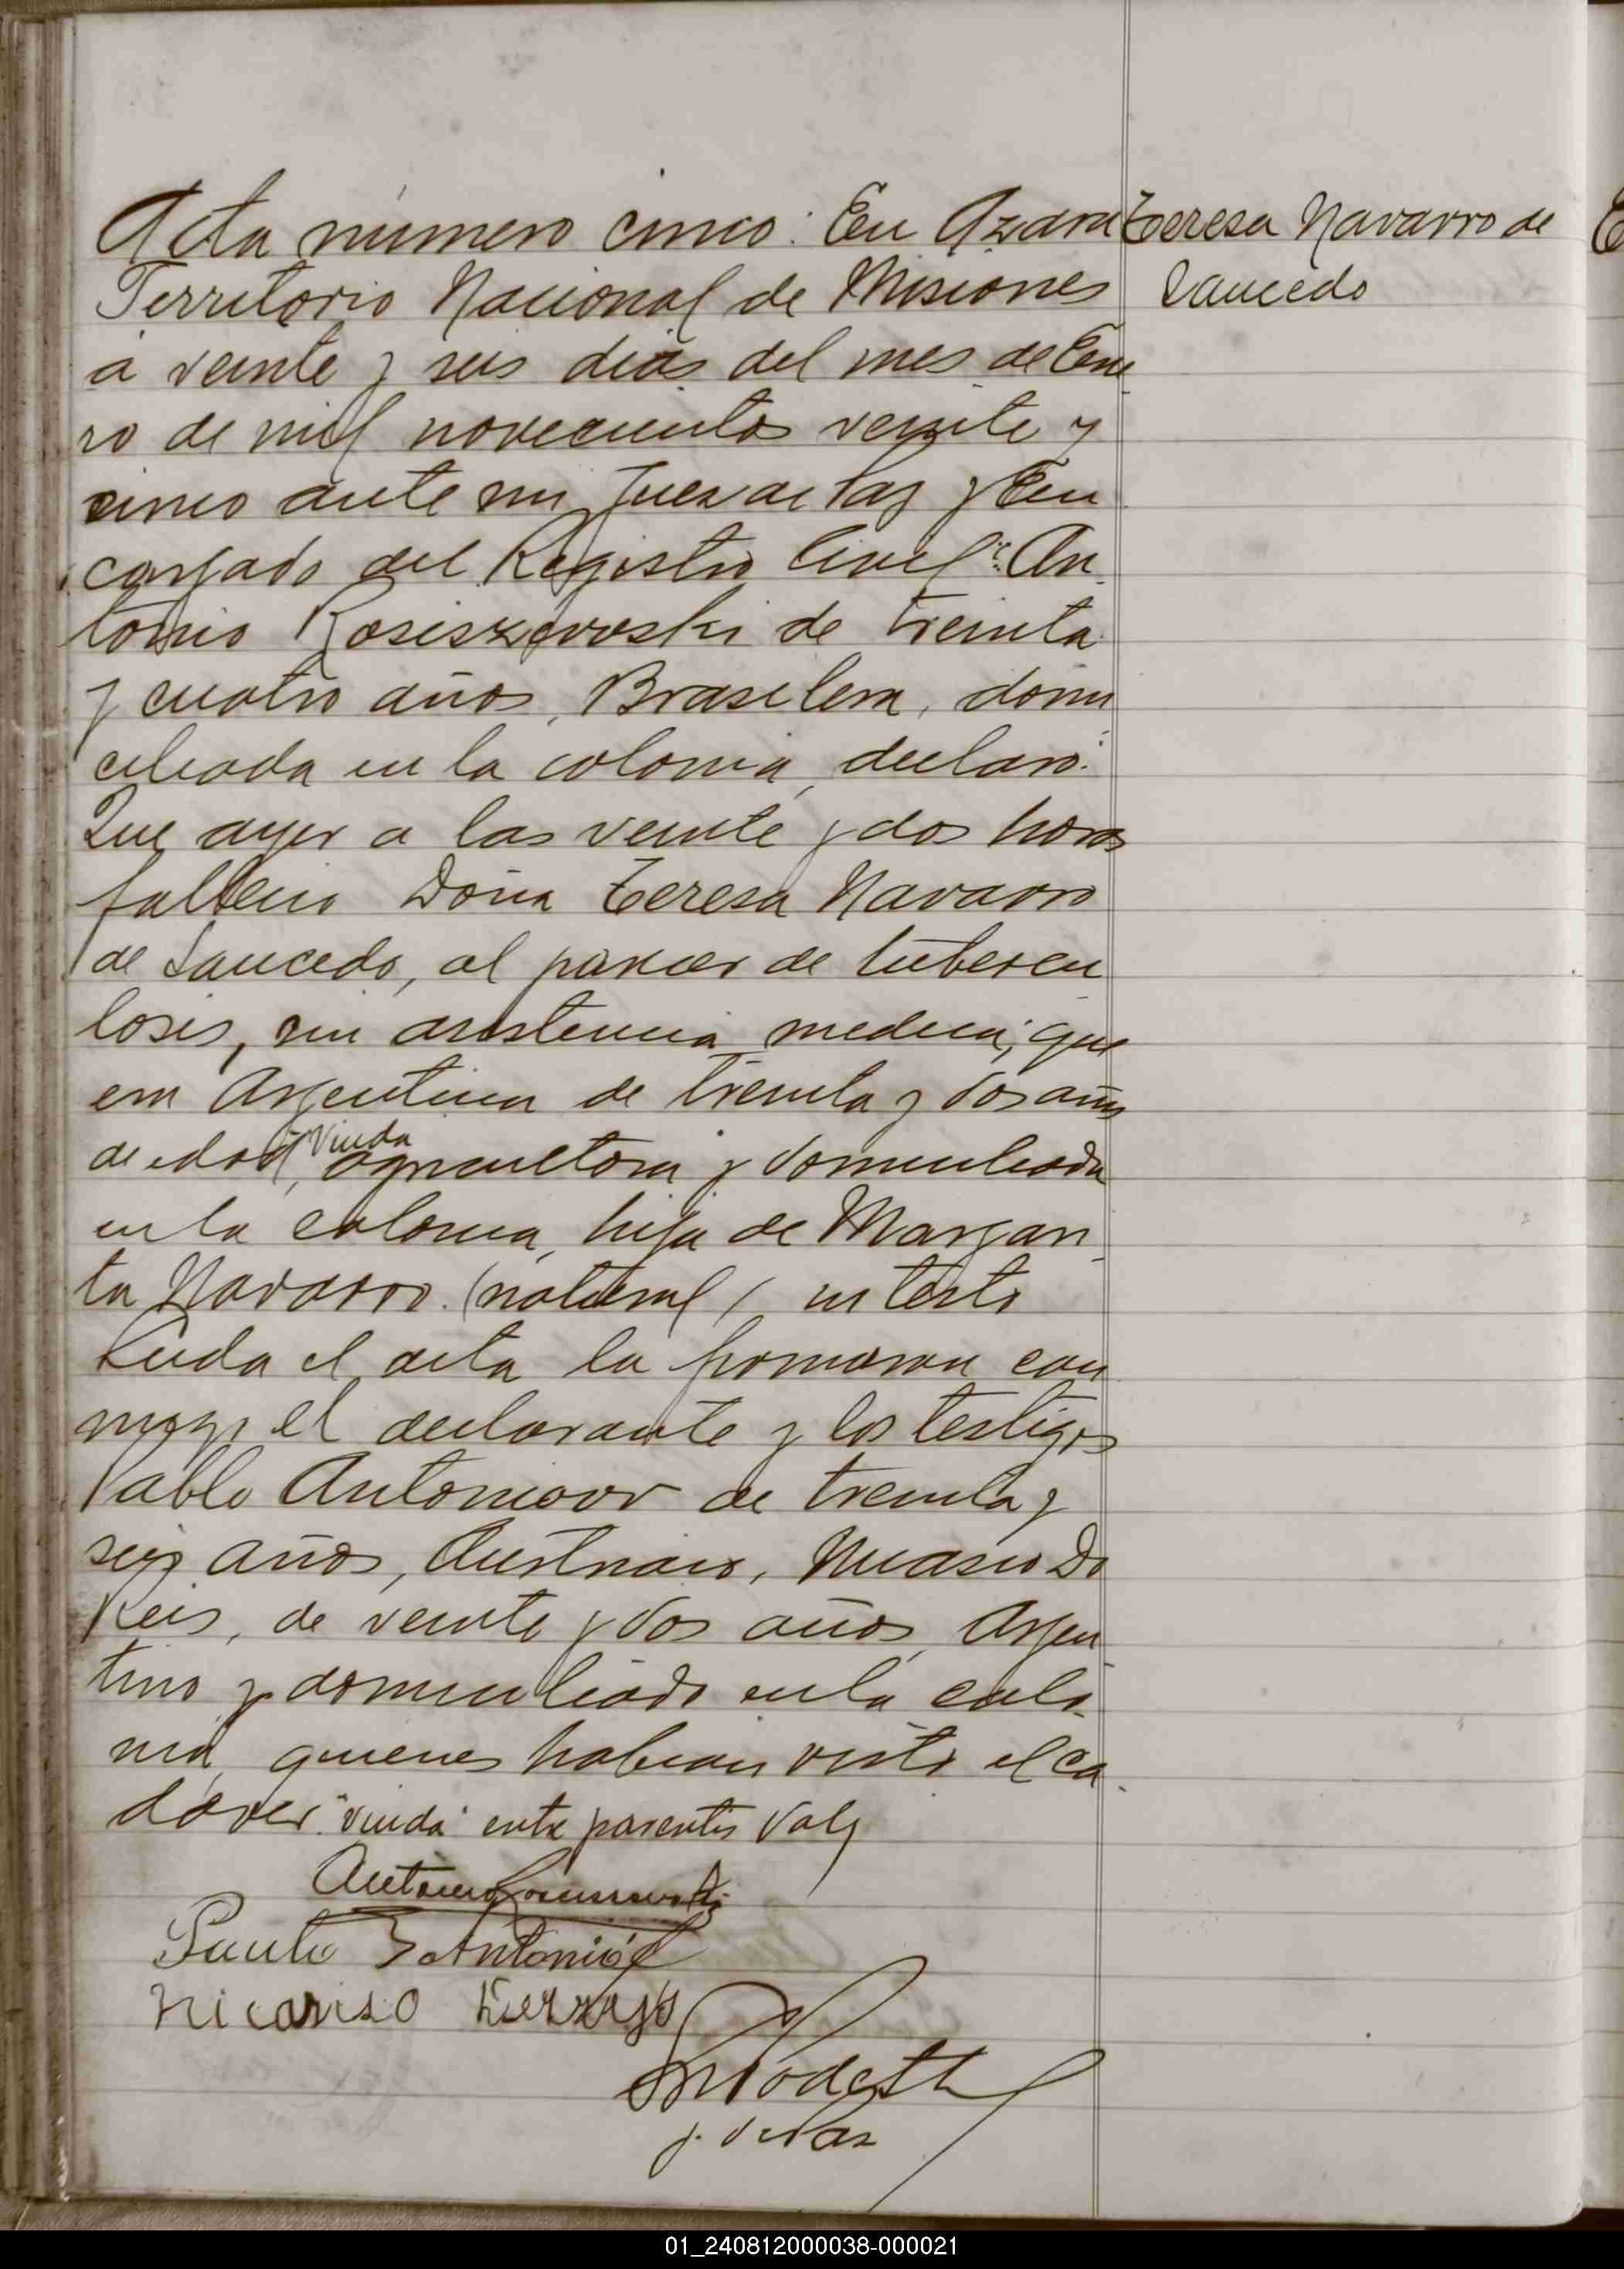 Acta número cinco: En Azara
Territorio Nacional de Misiones
a veinte y seis dias del mes de Ene
ro de mil novecientos veinte y
cinco ante mi Juez de Paz y En
cargado del Registro Civil: An
tonio Kosiszewski de treinta
y cuatro años, Brasilera, domi
ciliada en la colonia, declaró:
Que ayer a las veinte y dos horas
fallecio Doña Teresa Navarro
de Saucedo, al parecer de tubercu
losis, sin asistencia medica; que
era Argentina de treinta y dos años
de edad, viuda agricultora y domiciliada
en la colonia, hija de Margari
ta Navarro (natural)
Leida el acta la firmaron con
migo el declarante y los testigos
Pablo Antoniow de treinta y
seis años, Austriaco, Do
Reis, de veinte y dos años, Argen
tino y domiciliado en la colo
nia, quienes habian visto el ca
daver. "viuda" entre parentis Vale
Antonio
Paulo Antoniów
Nicanso
Podestá
J. de Paz
Teresa Navarro de
Saucedo
01_240812000038-000021